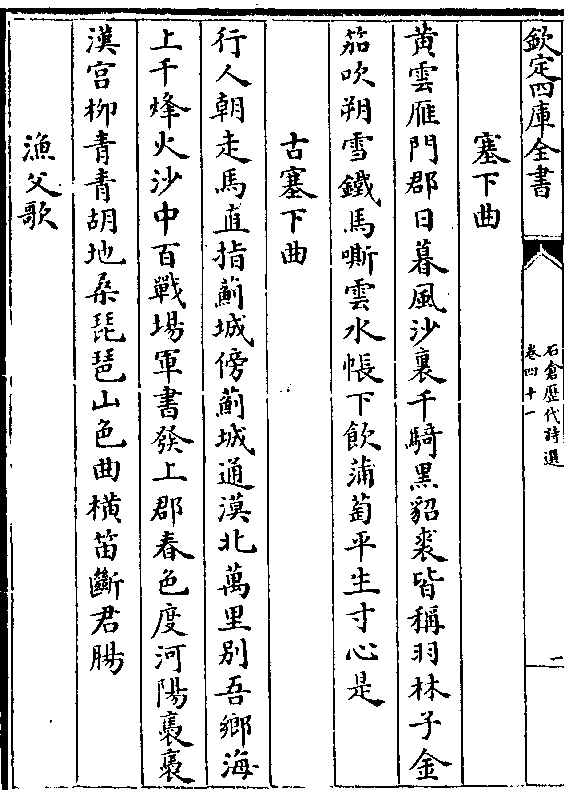 欽定四庫全書
石倉歷代詩選
卷四十一
二
塞下曲
黃雲雁門郡日暮風沙裏千騎黑貂裘皆稱羽林子金
笳吹朔雪鐵馬嘶雲水帳下飲蒲萄平生寸心是
古塞下曲
行人朝走馬直指薊城傍薊城通漠北萬里别吾鄉海
上千烽火沙中百戰場軍書發上郡春色度河陽裊裊
漢宮柳青青胡地桑琵琶山色曲橫笛斷君腸
漁父歌